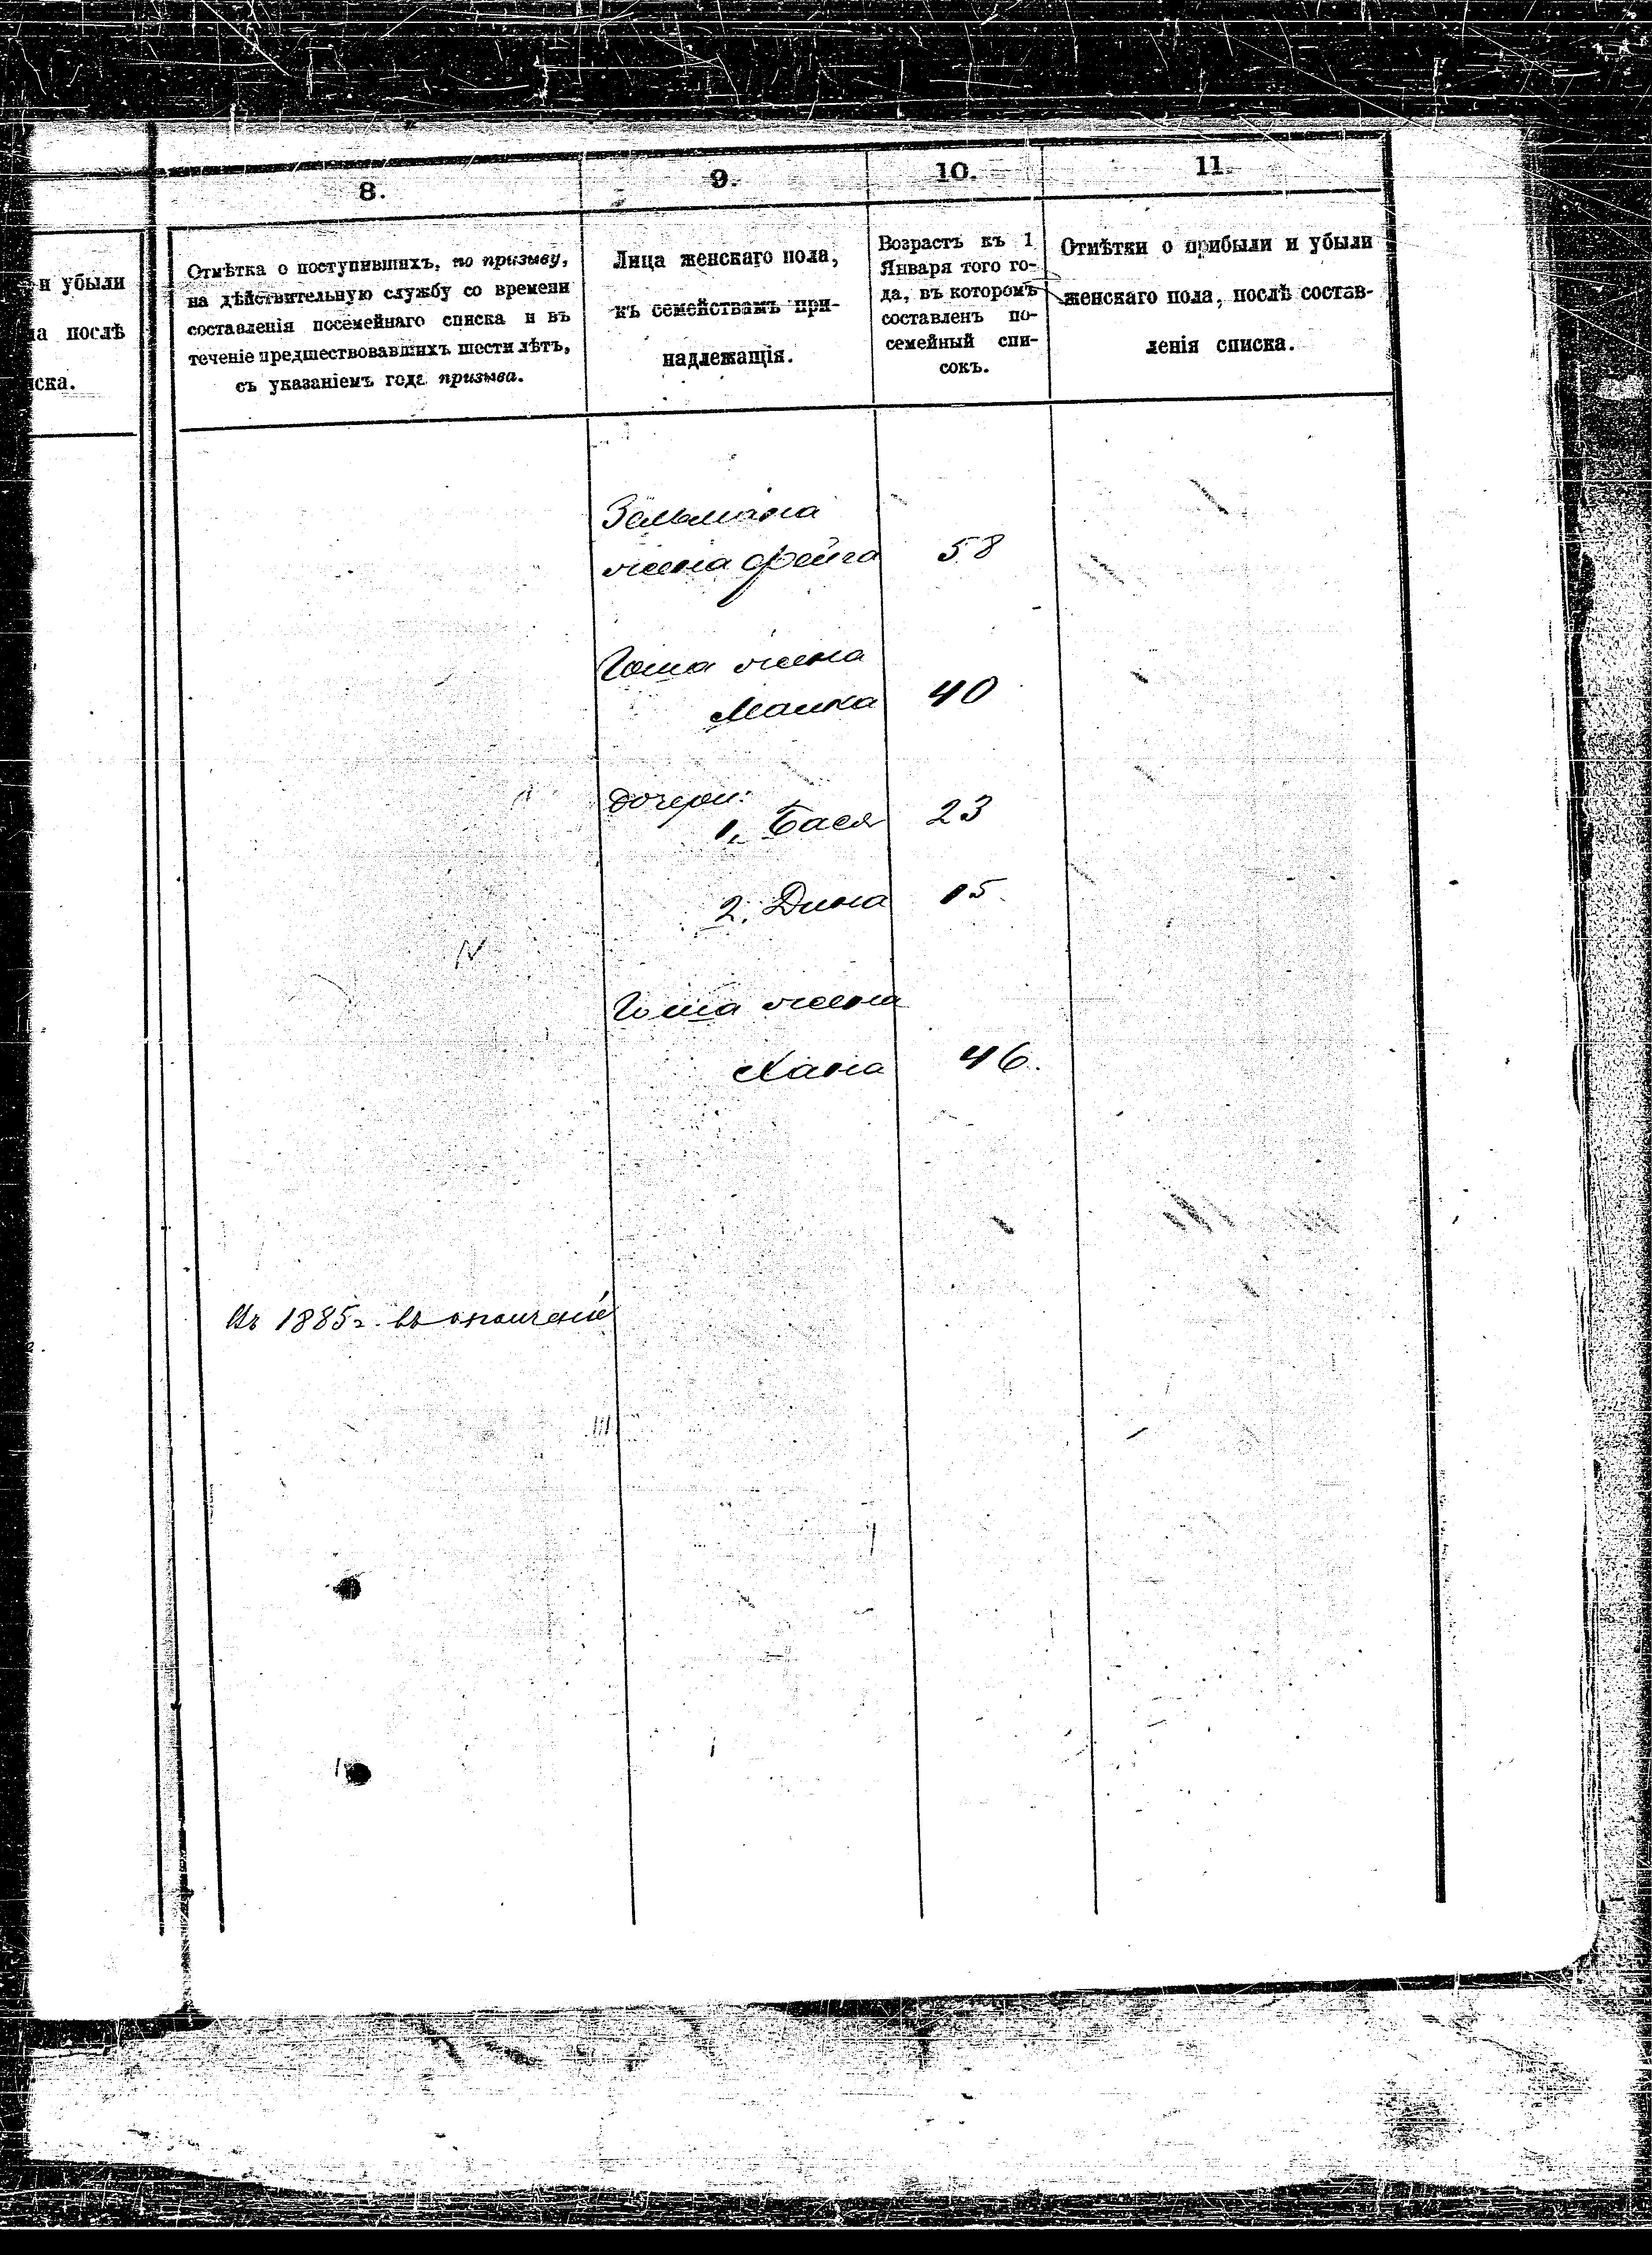 и убыли
ла послѣ
иска.
8.
Отмѣтка о поступившихъ, по призыву,
на дѣйствительную службу со времени
составленія посемейнаго списка и въ
теченіе предшествовавшихъ шести лѣтъ,
съ указаніемъ года призыва.
9.
Лица женскаго пола,
къ семействамъ при-
надлежащія.
10.
Возрастъ къ 1
Января того го-
да, въ которомъ
составленъ по-
семейный спи-
сокъ.
11.
Отмѣтки о прибыли и убыли
женскаго пола, послѣ состав-
ленія списка.
Зельмана
жена Фейга 58
жена
Малка 40
дочери:
1. Бася 23
2. Дина 15
жена
Хана 46.
Въ 1885 г. въ ополченіе